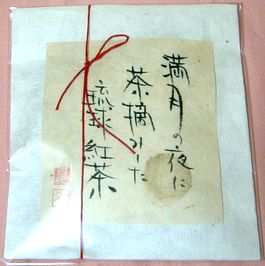 満月の夜に
茶摘みした
琉球紅茶